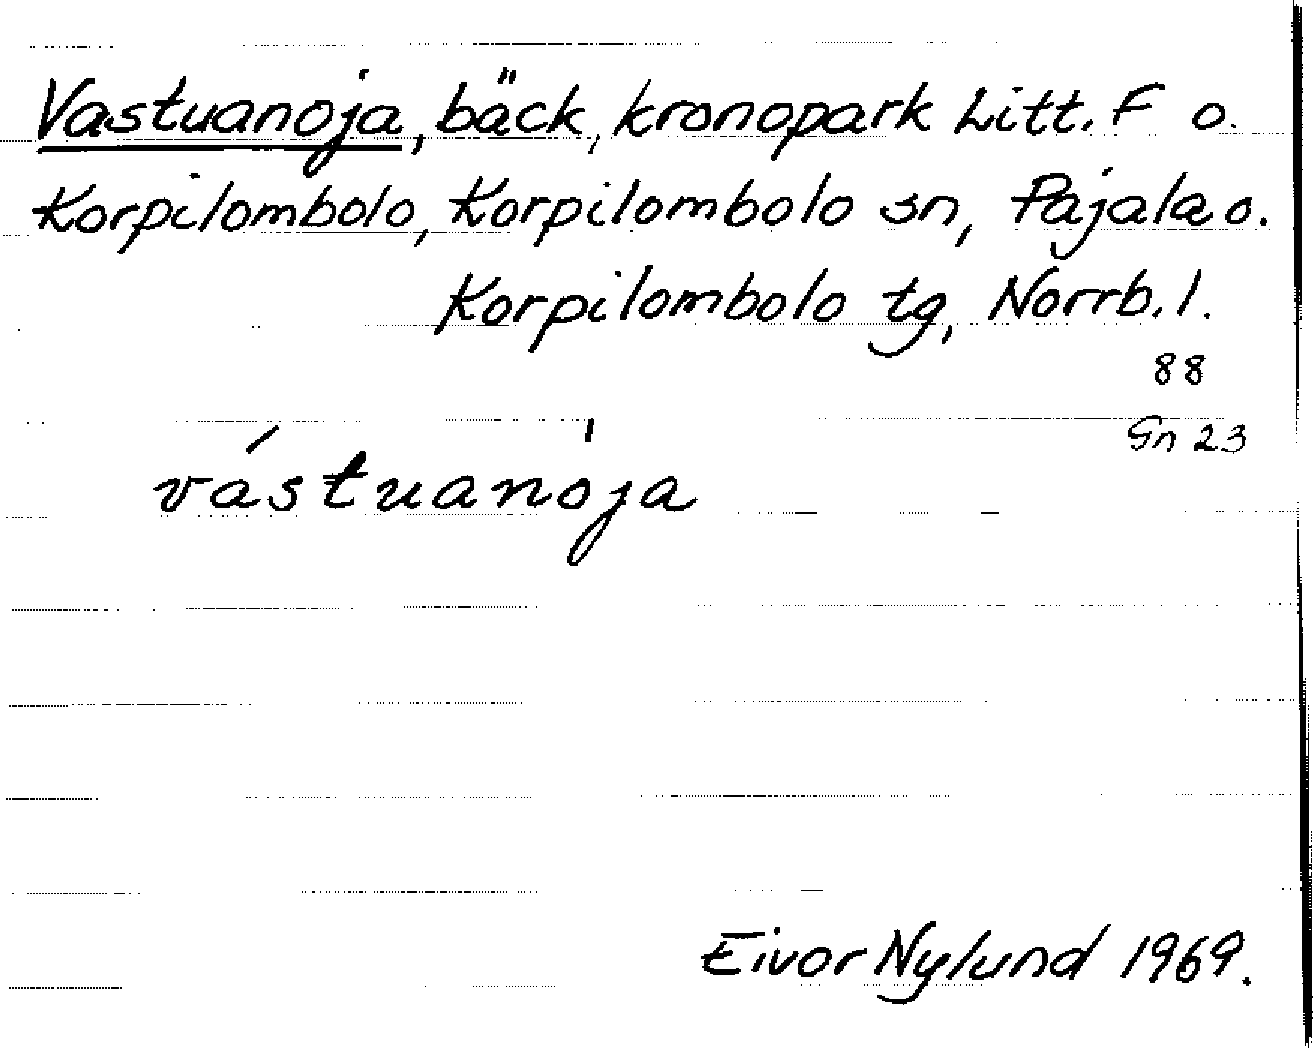 Vastuanoja, bäck, kronopark Litt. F o.
Korpilombolo, Korpilombolo sn, Pajala o.
Korpilombolo tg, Norrb. l.
88
Gn 23
vástuanòja
Eivor Nylund 1969.